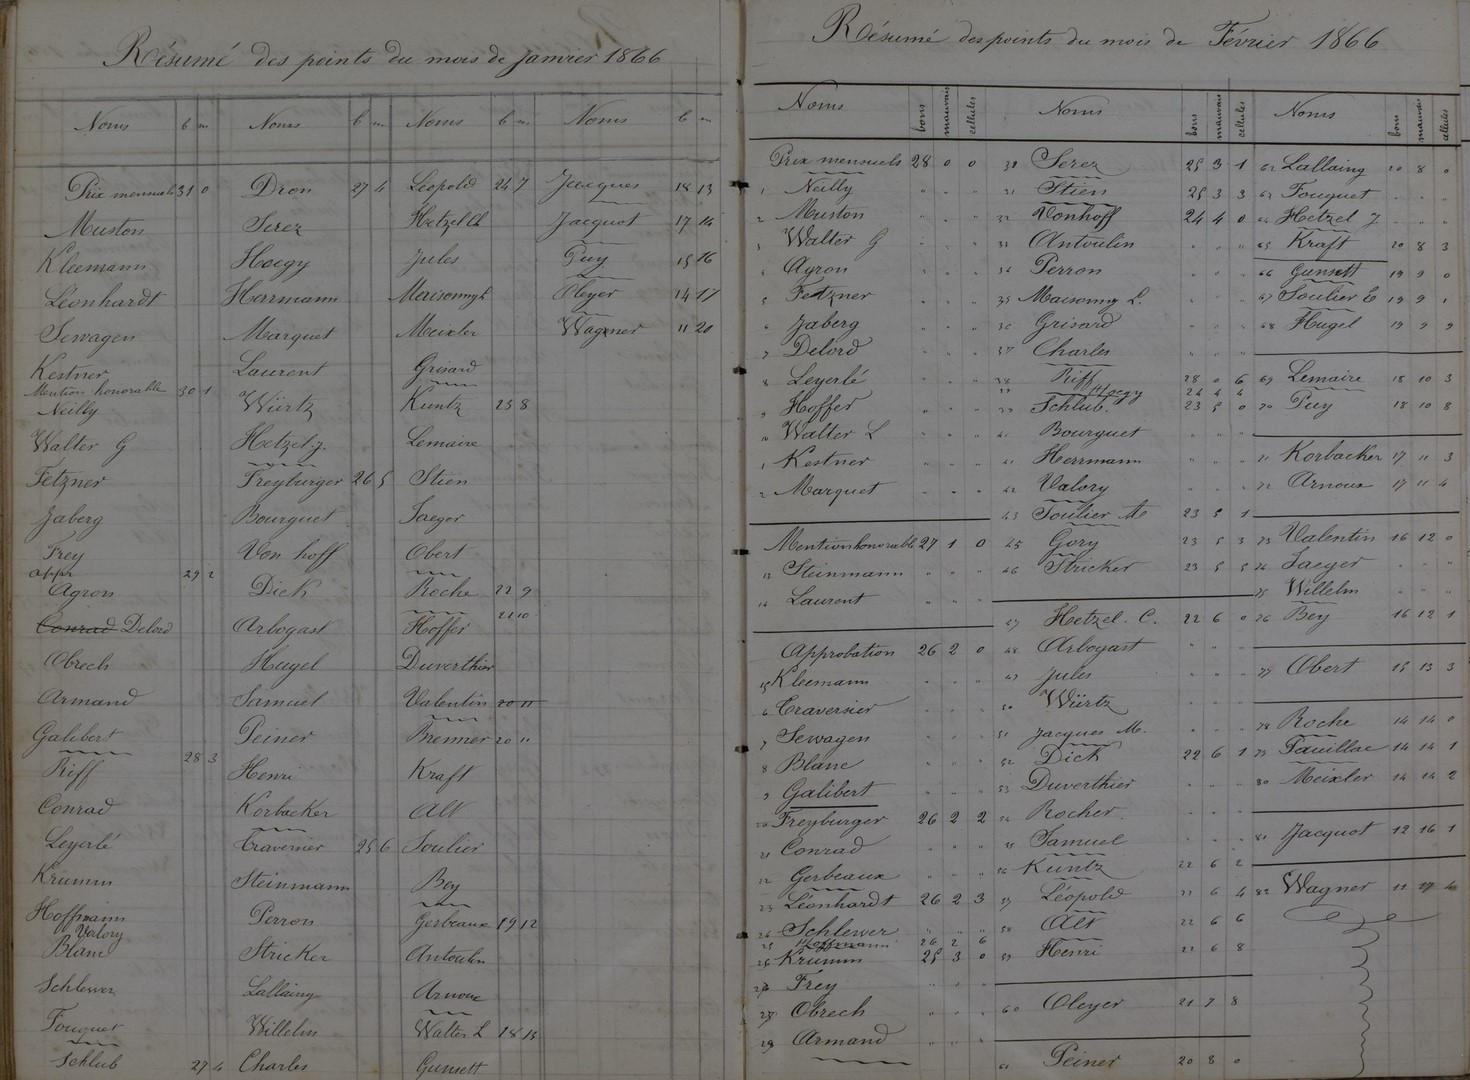 Résumé des points du mois de janvier 1866
Noms b m
Prix mensuels 31 0
Muston
Kleemann
Léonhardt
Sewagen
Kestner
Mention honorable 30 1
Neilly
Walter G
Fetzner
Jaberg
Frey
appr 29 2
Agron
Conrad Delord
Obrech
Armand
Galibert
28 3
Riff
Conrad
Leyerlé
Krumm
Hoffmann
Valory
Blanc
Schlewer
Fouquet
Schlub 27 4
Noms b m
Dron 27 4
Serez
Hoegy
Herrmann
Marquet
Laurent
Würtz
Hetzel j.
Freyburger 26 5
Bourguet
Von hoff
Dick
Arbogast
Hugel
Samuel
Peiner
Henri
Korbacker
Traversier 25 6
Steinmann
Perron
Stricker
Lallaing
Willelm
Charles
Noms b m
Léopold 24 7
Hetzel Ch
Jules
Maisonny L
Meixler
Grisard
Kuntz 23 8
Lemaire
Stien
Jaeger
Obert
Roche 22 9
21 10
Hoffer
Duverthier
Valentin 20 11
Brenner 20 11
Kraft
Alt
Soulier
Bey
Gerbeaux 19 12
Antoulin
Arnoux
Walter L 18 13
Gunsett
Noms b m
Jacques 18 13
Jacquot 17 14
Puy 15 16
Oleyer 14 17
Wagner 11 20
Résumé des points du mois de Février 1866
Noms bons mauvais cellules
Prix mensuels 28 0 0
1 Neilly " " "
2 Muston " " "
3 Walter G " " "
4 Agron " " "
5 Fetzner " " "
6 Jaberg " " "
7 Delord " " "
8 Leyerlé " " "
9 Hoffer " " "
10 Walter L " " "
1 Kestner " " "
2 Marquet " " "
Mention honorable 27 1 0
13 Steinmann " " "
14 Laurent " " "
Approbation 26 2 0
15 Kleemann " " "
6 Traversier " " "
7 Sewagen " " "
8 Blanc " " "
9 Galibert " " "
20 Freyburger 26 2 2
21 Conrad " " "
22 Gerbeaux " " "
23 Léonhardt 26 2 3
24 Schlewer " " "
25 Hoffmann 26 2 6
26 Krumm 25 3 0
27 Frey " " "
28 Obrech " " "
29 Armand " " "
Noms bons mauvais cellules
30 Serez 25 3 1
31 Stien 25 3 3
32 Vonhoff 24 4 0
33 Antoulin " " "
34 Perron " " "
35 Maisonny L. " " "
36 Grisard " " "
37 Charles " " "
38 Riff 28 0 6
Hoegy 24 4 4
Schlub. 23 5 0
Bourguet " " "
41 Herrmann " " "
42 Valory " " "
43 Soulier M 23 5 1
45 Gory 23 5 3
46 Stricker 23 5 5
47 Hetzel. C. 22 6 0
48 Arbogast " " "
49 Jules " " "
50 Würtz " " "
51 Jacques M. " " "
52 Dick 22 6 1
53 Duverthier " " "
54 Rocher " " "
55 Samuel " " "
56 Kuntz 22 6 2
57 Léopold 22 6 4
58 Alt 22 6 6
59 Henri 22 6 8
60 Oleyer 21 7 8
61 Peiner 20 8 0
Noms bons mauvais cellules
62 Lallaing 20 8 0
63 Fouquet " " "
64 Hetzel J " " "
65 Kraft 20 8 3
66 Gunsett 19 9 0
67 Soulier E 19 9 1
68 Hugel 19 9 9
69 Lemaire 18 10 3
70 Puy 18 10 8
71 Korbacker 17 11 3
72 Arnoux 17 11 4
73 Valentin 16 12 0
74 Jaeger " " "
75 Willelm " " "
76 Bey 16 12 1
77 Obert 15 13 3
78 Roche 14 14 0
79 Pauillac 14 14 1
80 Meixler 14 14 2
81 Jacquot 12 16 1
82 Wagner 11 17 4